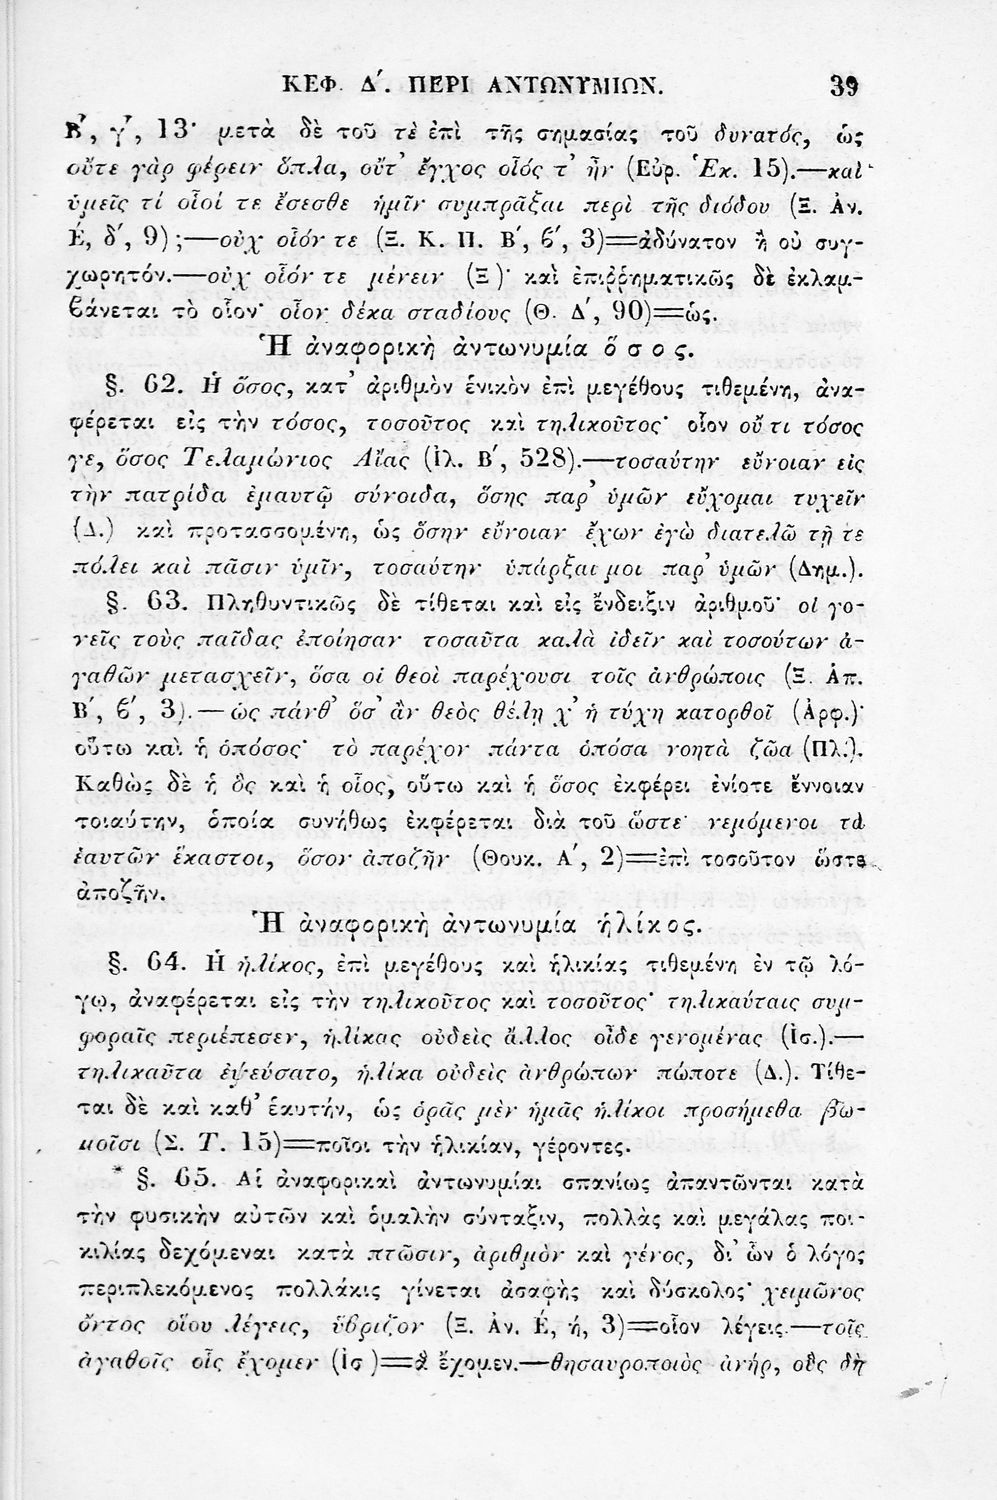 ΚΕΦ. Δ΄. ΠΕΡΙ ΑΝΤΩΝΥΜΙΩΝ. 39
Β΄, γ΄, 13· μετὰ δὲ τοῦ τὲ ἐπὶ τῆς σημασίας τοῦ δυνατός, ὡς
οὔτε γὰρ φέρειν ὅπλα, οὔτ’ ἔγχος οἷός τ’ ἦν (Εὐρ. Ἑκ. 15).—καὶ
ὑμεῖς τί οἷοί τε ἔσεσθε ἡμῖν συμπρᾶξαι περὶ τῆς διόδου (Ξ. Ἀν.
Ε΄, δ΄, 9);—οὐχ οἷόν τε (Ξ. Κ. Π. Β΄, ϐ΄, 3)=ἀδύνατον ἢ οὐ συγ-
χωρητόν.—οὐχ οἷόν τε μένειν (Ξ)· καὶ ἐπιῤῥηματικῶς δὲ ἐκλαμ-
ϐάνεται τὸ οἷον· οἷον δέκα σταδίους (Θ. Δ΄, 90)=ὡς.
Ἡ ἀναφορικὴ ἀντωνυμία ὅσος.
§. 62. Ἡ ὅσος, κατ’ ἀριθμὸν ἑνικὸν ἐπὶ μεγέθους τιθεμένη, ἀνα-
φέρεται εἰς τὴν τόσος, τοσοῦτος καὶ τηλικοῦτος· οἷον οὔ τι τόσος
γε, ὅσος Τελαμώνιος Αἴας (Ἰλ. Β΄, 528).—τοσαύτην εὔνοιαν εἰς
τὴν πατρίδα ἐμαυτῷ σύνοιδα, ὅσης παρ’ ὑμῶν εὔχομαι τυχεῖν
(Δ.) καὶ προτασσομένη, ὡς ὅσην εὔνοιαν ἔχων ἐγὼ διατελῶ τῇ τε
πόλει καὶ πᾶσιν ὑμῖν, τοσαύτην ὑπάρξαι μοι παρ’ ὑμῶν (Δημ.).
§. 63. Πληθυντικῶς δὲ τίθεται καὶ εἰς ἔνδειξιν ἀριθμοῦ· οἱ γο-
νεῖς τοὺς παῖδας ἐποίησαν τοσαῦτα καλὰ ἰδεῖν καὶ τοσούτων ἀ-
γαθῶν μετασχεῖν, ὅσα οἱ θεοὶ παρέχουσι τοῖς ἀνθρώποις (Ξ. Ἀπ.
Β΄, ϐ΄, 3).—ὡς πάνθ’ ὅσ’ ἂν θεὸς θέλῃ χ’ ἡ τύχη κατορθοῖ (Ἀρφ.)·
οὕτω καὶ ἡ ὁπόσος· τὸ παρέχον πάντα ὁπόσα νοητὰ ζῶα (Πλ.).
Καθὼς δὲ ἡ ὃς καὶ ἡ οἷος, οὕτω καὶ ἡ ὅσος ἐκφέρει ἐνίοτε ἔννοιαν
τοιαύτην, ὁποία συνήθως ἐκφέρεται διὰ τοῦ ὥστε· νεμόμενοι τὰ
ἑαυτῶν ἕκαστοι, ὅσον ἀποζῆν (Θουκ. Α΄, 2)=ἐπὶ τοσοῦτον ὥστε
ἀποζῆν.
Ἡ ἀναφορικὴ ἀντωνυμία ἡλίκος.
§. 64. Ἡ ἡλίκος, ἐπὶ μεγέθους καὶ ἡλικίας τιθεμένη ἐν τῷ λό-
γῳ, ἀναφέρεται εἰς τὴν τηλικοῦτος καὶ τοσοῦτος· τηλικαύταις συμ-
φοραῖς περιέπεσεν, ἡλίκας οὐδεὶς ἄλλος οἶδε γενομένας (Ἰσ.).—
τηλικαῦτα ἐψεύσατο, ἡλίκα οὐδεὶς ἀνθρώπων πώποτε (Δ.). Τίθε-
ται δὲ καὶ καθ’ ἑαυτήν, ὡς ὁρᾷς μὲν ἡμᾶς ἡλίκοι προσήμεθα βω-
μοῖσι (Σ. Τ. 15)=ποῖοι τὴν ἡλικίαν, γέροντες.
* §. 65. Αἱ ἀναφορικαὶ ἀντωνυμίαι σπανίως ἀπαντῶνται κατὰ
τὴν φυσικὴν αὐτῶν καὶ ὁμαλὴν σύνταξιν, πολλὰς καὶ μεγάλας ποι-
κιλίας δεχόμεναι κατὰ πτῶσιν, ἀριθμὸν καὶ γένος, δι’ ὧν ὁ λόγος
περιπλεκόμενος πολλάκις γίνεται ἀσαφὴς καὶ δύσκολος· χειμῶνος
ὄντος οἵου λέγεις, ὕϐριζον (Ξ. Ἀν. Ε΄, ή, 3)=οἷον λέγεις.—τοῖς
ἀγαθοῖς οἷς ἔχομεν (Ἰσ)=ἃ ἔχομεν.—θησαυροποιὸς ἀνήρ, οὓς δὴ